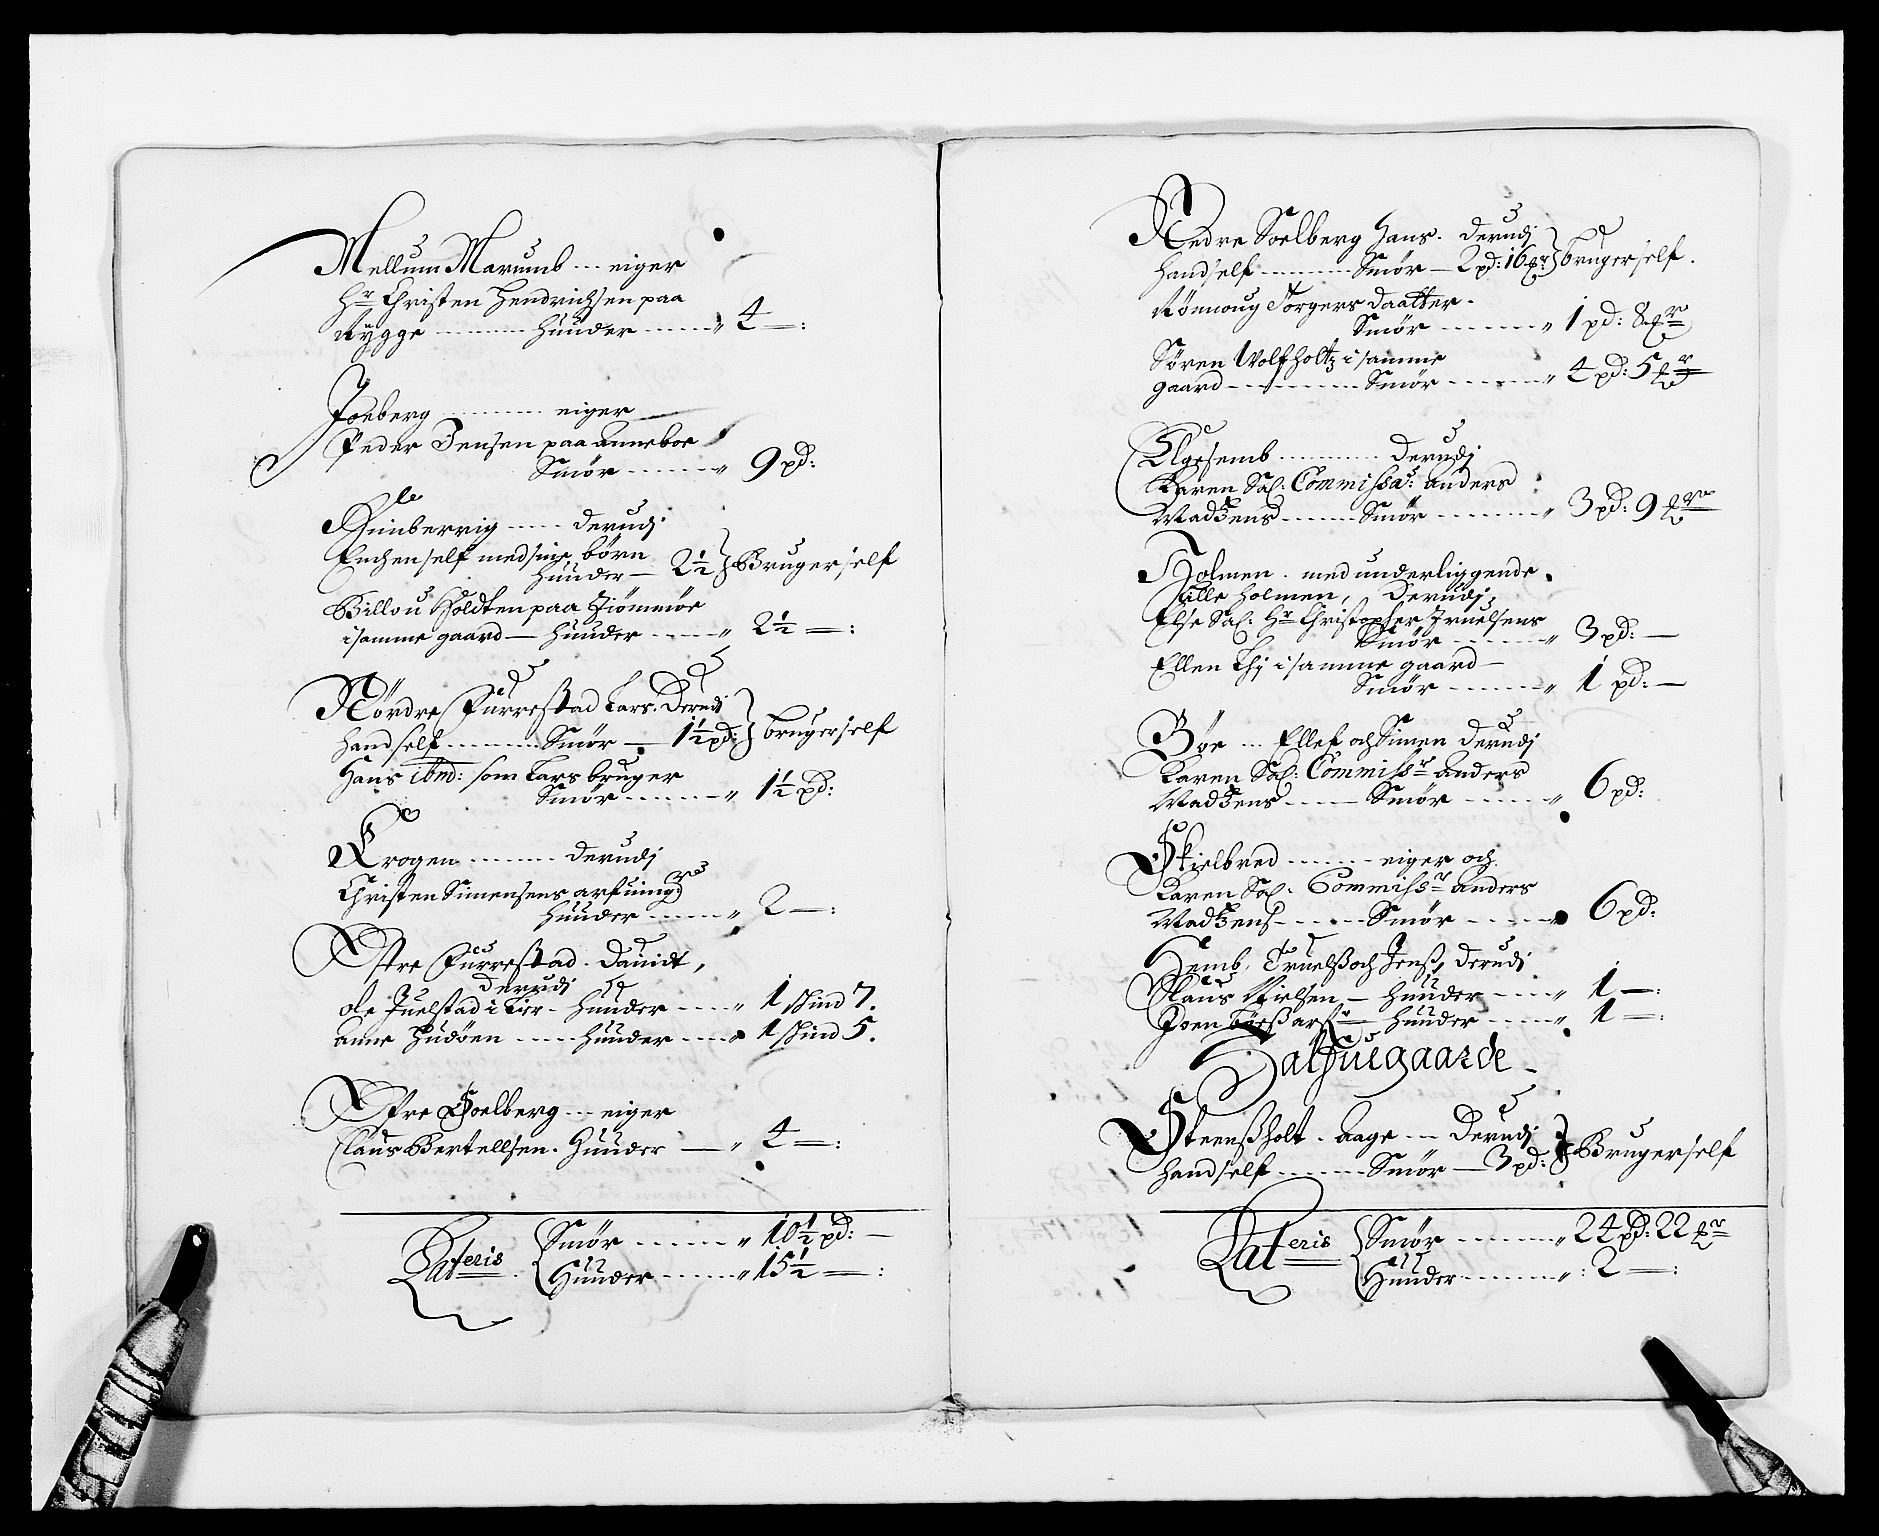 Mellum Marumb --- eiger
Hr Christen Hendrichsen paa
Rygge ------- Huuder ------ " 4 — :
Joeberg ------- eiger
Peder Jensen paa Anneboe
Smör ------- " 9 pd:
Gimberrig ----- derudj
Enchen self med sine börn
Huuder — 2½ } Bruger self
Gillou Holdten paa Tiömmöe
i samme gaard — Huuder ---- " 2½ — :
Nördre Furrestad Lars. Derudi
hand self ------- Smör — 1½ pd: } bruger self
Hans ibnd: som Lars bruger
Smör ------- " 1½ pd:
Krogen ------- derudj
Christen Simensens arfuing
Huuder ------ " 2 — :
Östre Furrestad. Dauidt,
derudj
Ole Juelstad i Lier - Huuder ---- " 1 skind 7.
Anne Hudöen ----- Huuder ---- " 1 skind 5.
Öfre Soelberg --- eiger
Claus Bertellsen. Huuder — " 4 — :
Lateris { Smör ------ " 10½ pd: —
Huuder ------ " 15½ — :
Nedre Soelberg Hans. derudj
hand self ------- Smör — 2 pd: 16 } bruger self.
Rönnoug Torgers daatter.
Smör ------- " 1 pd: 8
Sören Wolfholtz i samme
gaard ------- Smör ------ " 4 pd: 5
Aggesemb ------- derudj
Karen Sal: Commissa: Anders
Madtzens ------ Smör ------ " 3 pd: 9
Holmen. med underliggende
Lille Holmen, Derudj,
Else Sal: Hr Christopher Truelsens
Smör ------- " 3 pd: —
Ellen i samme gaard —
Smör ------- " 1 pd: —
Böe --- Ellef och Simen derudj
Karen Sal: Commissr Anders
Madtzens ----- Smör ------ " 6 pd:
Skielbred ------ eiger och
Karen Sal: Commissr Anders
Madtzens ----- Smör ------ 6 pd:
Hemb, Truelß och Jenß, derudi
Claus Nielsen — Huuder ---- " 1 — :
Joen — Huuder ---- " 1 — :
Halfuegaarde
Steenßholt. Aage --- Derudj
hand self ------ Smör — 3 pd: } Bruger self
Lateris { Smör ------- " 24 pd: 22
Huuder ------- " : 2 — :